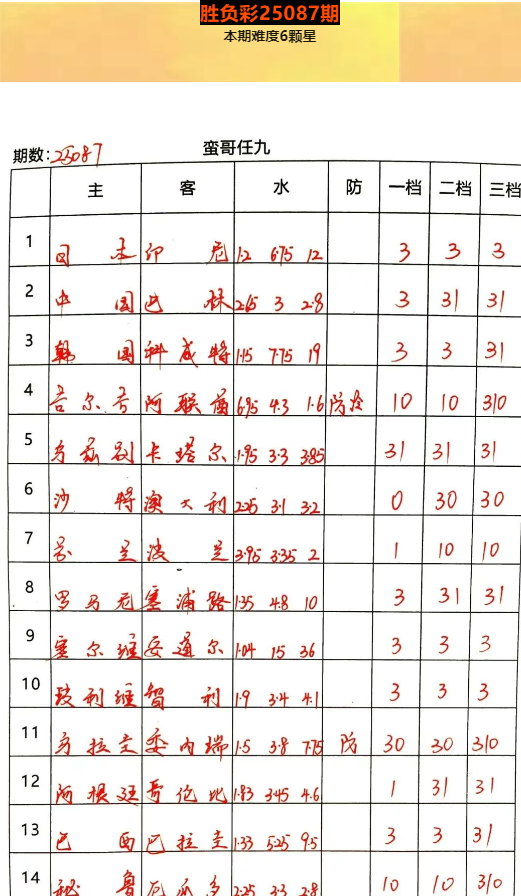 胜负彩25087期
本期难度6颗星
期数:25087 蛮哥任九
主 客 水 防 一档 二档 三档
1 日本 印尼 1.2 6.75 12 3 3 3
2 中国 巴林 2.65 3 2.8 3 31 31
3 韩国 科威特 1.15 7.75 19 3 3 31
4 吉尔吉 阿联酋 6.95 4.3 1.6 10 10 310
5 乌兹别 卡塔尔 1.95 3.3 3.85 31 31 31
6 沙特 澳大利 2.25 3.1 3.2 0 30 30
7 芬兰 波兰 3.95 3.35 2 1 10 10
8 罗马尼 塞浦路 1.35 4.8 10 3 31 31
9 塞尔维 安道尔 1.04 15 36 3 3 3
10 玻利维 智利 1.9 3.4 4.1 3 3 3
11 乌拉圭 委内瑞 1.5 3.8 7.75 防 30 30 310
12 阿根廷 哥伦比 1.83 3.45 4.6 1 31 31
13 巴西 巴拉圭 1.33 5.25 9.5 3 3 31
14 秘鲁 厄瓜多 2.25 3.3 2.8 10 10 310